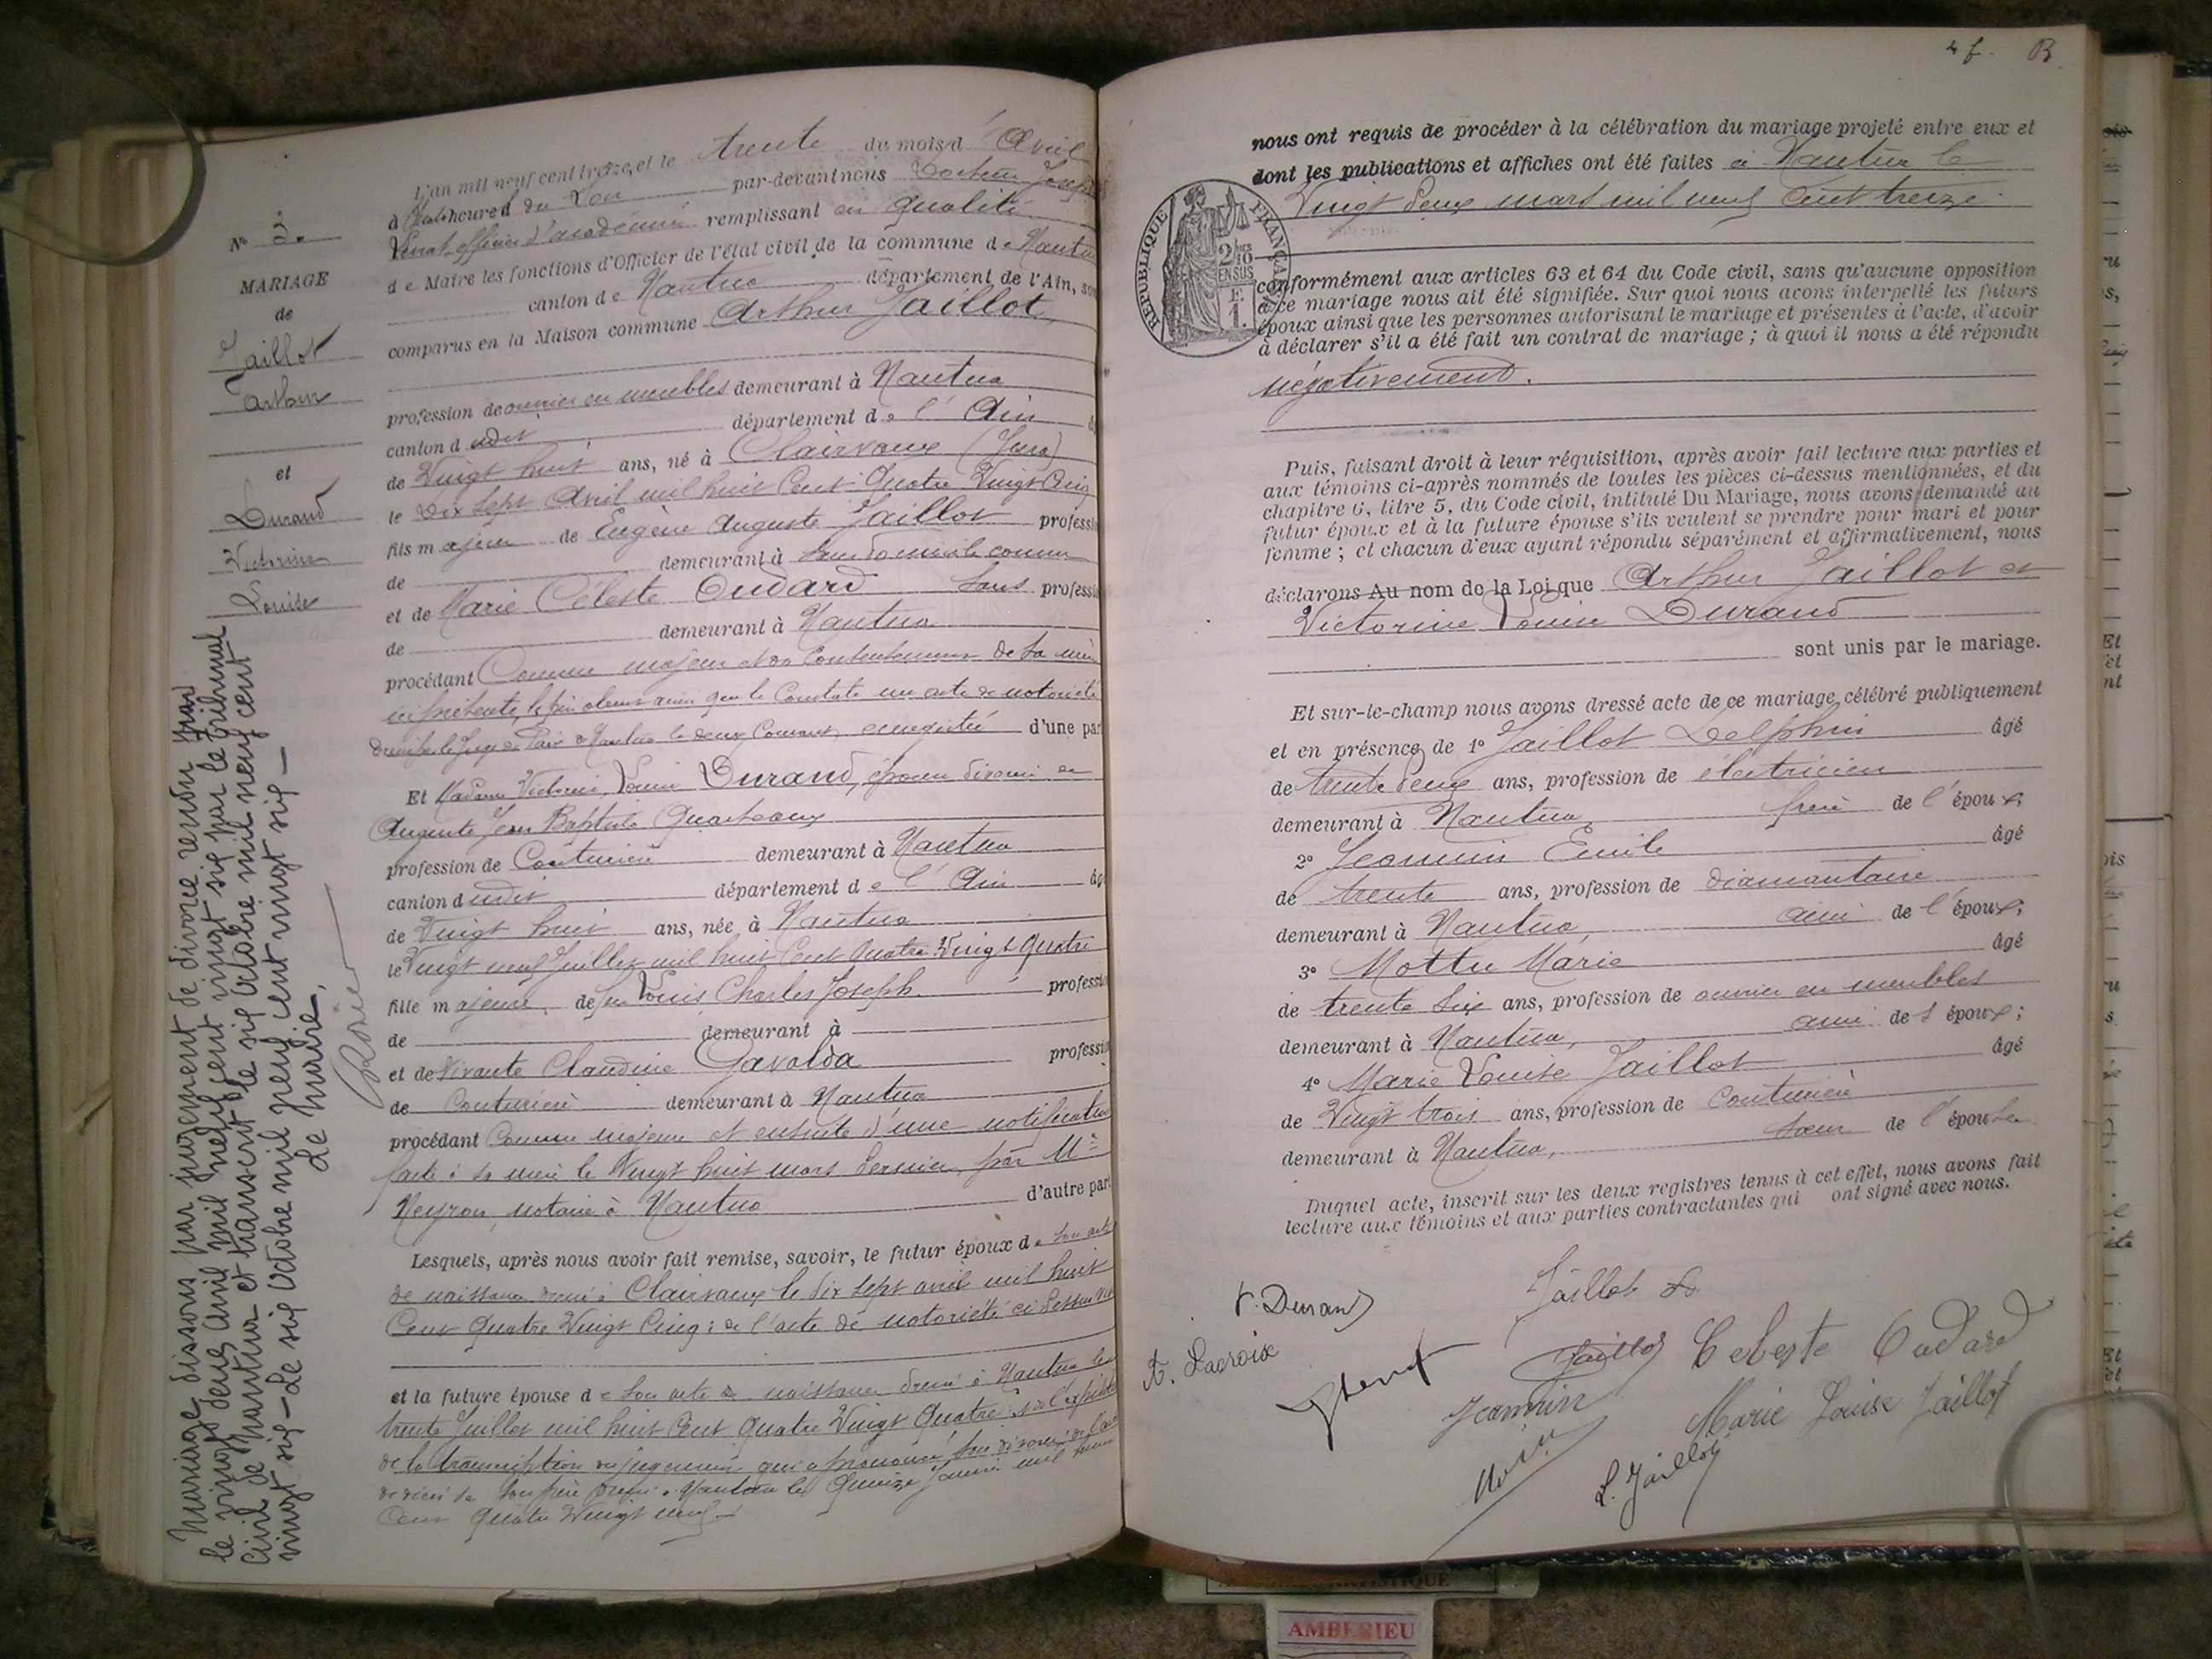 N° 3
MARIAGE
de
Jaillot
Arthur
et
Durand
Victorine
Louise
Mariage dissous par jugement de divorce rendu par
le vingt deux avril mil neuf cent vingt six par le tribunal
civil de Nantua et transcrit le six octobre mil neuf cent
vingt six - Le six octobre mil neuf cent vingt six -
Le Maire,
L'an mil neuf cent treize, et le trente du mois d'Avril
à heure du soir par-devant nous Docteur Joseph
officier d'académie remplissant en qualité
de Maire les fonctions d'Officier de l'état civil de la commune de Nantua
canton de Nantua département de l'Ain, sont
comparus en la Maison commune Arthur Jaillot
profession de ouvrier en meubles demeurant à Nantua
canton dudit département de l'Ain
de Vingt huit ans, né à Clairvaux (Jura)
le Dix sept Avril mil huit Cent Quatre Vingt Cinq
fils majeur de Eugène Auguste Jaillot professi
de demeurant à sans domicile connu
et de Marie Céleste Oudard Sans professi
de demeurant à Nantua
procédant Comme majeur et du Consentement de sa mère
ici présente, le père absent ainsi que le Constate un acte de notoriété
dressé par le Juge de Paix de Nantua le deux Courant enregistré d'une par
Et Madame Victorine Louise Durand, épouse divorcée de
Auguste Jean Baptiste
profession de Couturière demeurant à Nantua
canton dudit département de l'Ain âg
de Vingt huit ans, née à Nantua
le Vingt neuf Juillet mil huit Cent Quatre Vingt Quatre
fille majeure de feu Louis Charles Joseph professi
de demeurant à
et de vivante Claudine Gavolda professi
de Couturière demeurant à Nantua
procédant Comme majeure et ensuite d'une notification
faite à sa mère le Vingt huit mars dernier par Me
Neyron notaire à Nantua d'autre part
Lesquels, après nous avoir fait remise, savoir, le futur époux de son acte
de naissance dressé à Clairvaux le dix sept avril mil huit
Cent Quatre Vingt Cinq ; de l'acte de notoriété ci dessus
et la future épouse de Son acte de naissance dressé à Nantua le
trente Juillet mil huit Cent Quatre Vingt Quatre ; de l'expédition
de la transcription du jugement qui a prononcé son divorce ; de l'acte
de décès de son père dressé à Nantua le Quinze Janvier mil huit
Cent Quatre Vingt neuf
nous ont requis de procéder à la célébration du mariage projeté entre eux et
dont les publications et affiches ont été faites à Nantua le
Vingt deux mars mil neuf Cent treize
RÉPUBLIQUE FRANÇAISE
2/10
EN SUS
F.
1.
conformément aux articles 63 et 64 du Code civil, sans qu'aucune opposition
à ce mariage nous ait été signifiée. Sur quoi nous avons interpellé les futurs
époux ainsi que les personnes autorisant le mariage et présentes à l'acte, d'avoir
à déclarer s'il a été fait un contrat de mariage ; à quoi il nous a été répondu
négativement.
Puis, faisant droit à leur réquisition, après avoir fait lecture aux parties et
aux témoins ci-après nommés de toutes les pièces ci-dessus mentionnées, et du
chapitre 6, titre 5, du Code civil, intitulé Du Mariage, nous avons demandé au
futur époux et à la future épouse s'ils veulent se prendre pour mari et pour
femme ; et chacun d'eux ayant répondu séparément et affirmativement, nous
déclarons Au nom de la Loi que Arthur Jaillot et
Victorine Louise Durand
sont unis par le mariage.
Et sur-le-champ nous avons dressé acte de ce mariage, célébré publiquement
et en présence de 1° Jaillot Delphin âgé
de trente deux ans, profession de électricien
demeurant à Nantua, frère de l'époux;
2° Jeannin Emile âgé
de trente ans, profession de diamantaire
demeurant à Nantua, ami de l'époux;
3° Mottu Marie âgé
de trente six ans, profession de ouvrier en meubles
demeurant à Nantua, ami de l'époux;
4° Marie Louise Jaillot âgé
de Vingt trois ans, profession de Couturière
demeurant à Nantua, soeur de l'épouse
Duquel acte, inscrit sur les deux registres tenus à cet effet, nous avons fait
lecture aux témoins et aux parties contractantes qui ont signé avec nous.
V. Durand
Jaillot D
A. Lacroix
Jaillot
Celeste Oudard
Jeannin
Marie Louise Jaillot
L. Jaillot
AMBERIEU